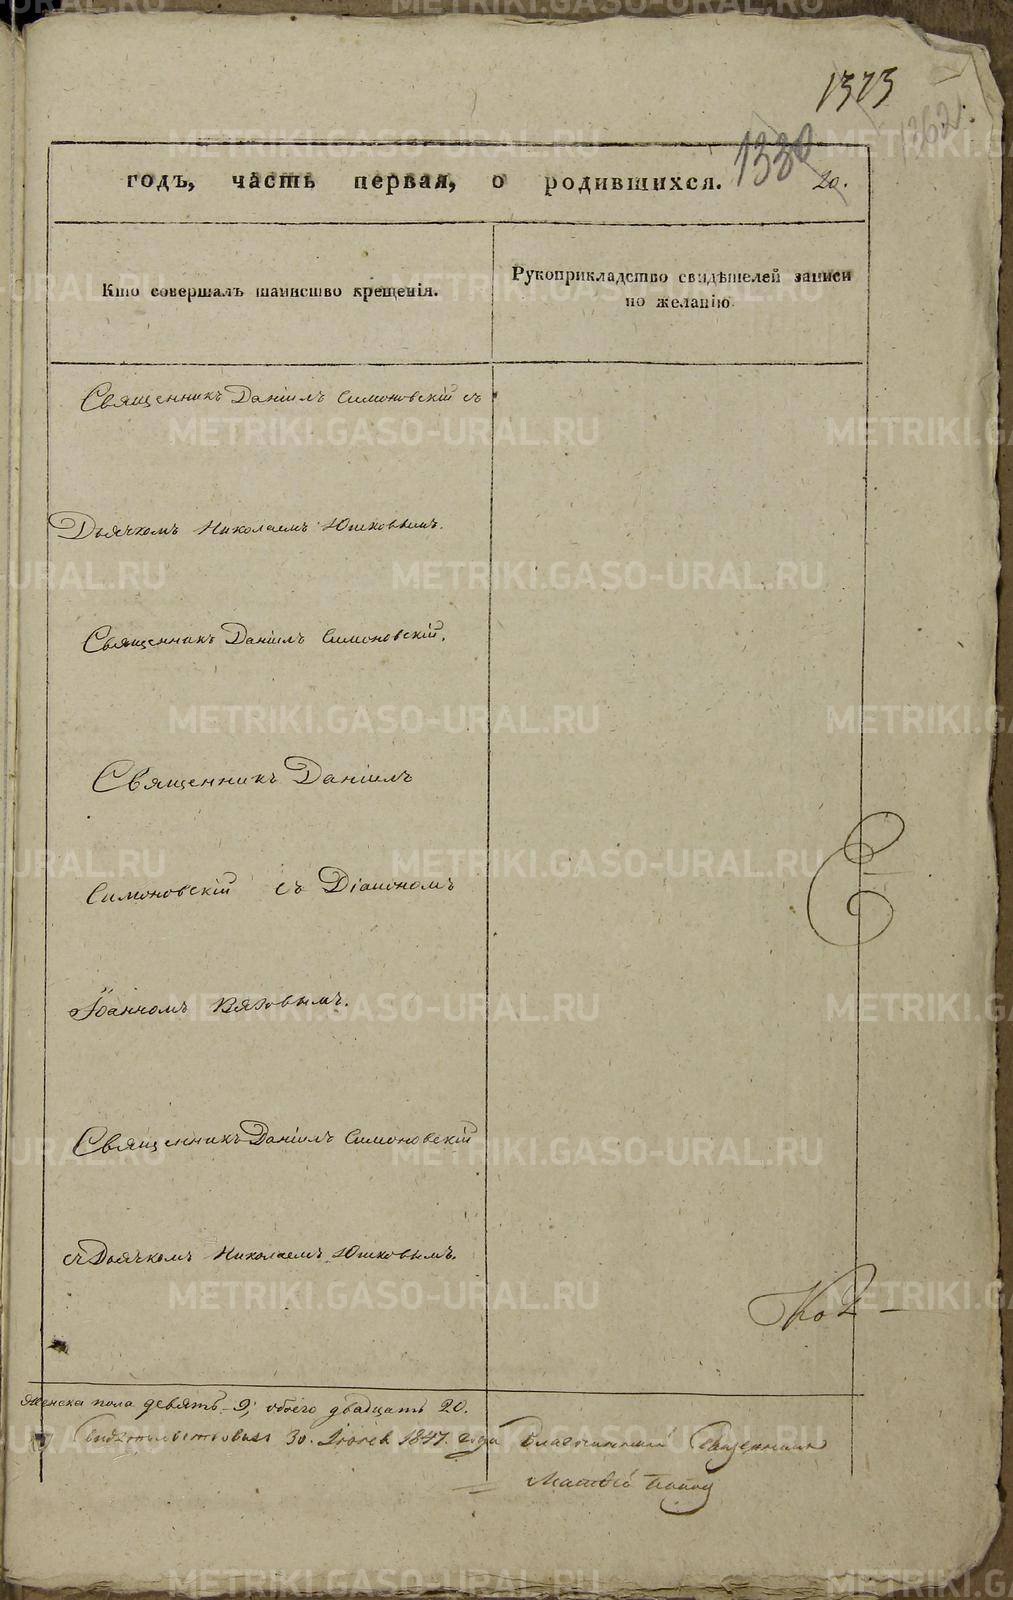 1373
1362.
1330
годъ, часть первая, о родившихся. 20.
Кто совершалъ таинство крещенія.
Рукоприкладство свидѣтелей записи
по желанію
Священникъ Даніилъ Симоновскій съ
Дьячкомъ Николаемъ Юшковымъ.
Священникъ Даніилъ Симоновскій.
Священникъ Даніилъ
Симоновскій съ Діакономъ
Іоанномъ Вяловымъ.
Священникъ Даніилъ Симоновскій
съ Дьячкомъ Николаемъ Юшковымъ.
Женска пола девять 9; обоего двадцать 20.
Свидѣтельствовалъ 30. Іюня 1847. года Благочинный Священникъ
Матѳій Поповъ
METRIKI.GASO-URAL.RU